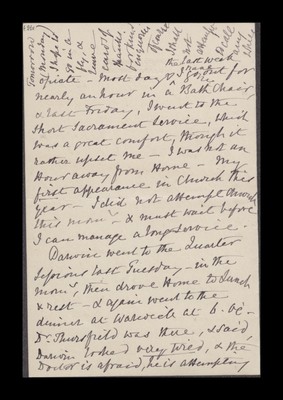 Tomorrow
(Monday)
I hope to
go in a
fly, &
leave
cards of
thanks,
for kind
enquiries
after
I shall
not
attempt
to call
any
place
the last week
opiate - most days I go out for
nearly an hour in a Bath Chair
& last Friday, I went to the
short Sacrament Service, which
was a great comfort, though it
rather upset me - I was not an
Hour away from Home - My
first appearance in Church this
year - I did not attempt Church
this morng - & must wait before
I can manage a long Service -
Darwin went to the Quarter
Sessions last Tuesday - in the
morng, then drove Home to Lunch
& rest - & again went to the
dinner at Warwick at 6. oc -
Dr Thursfield was there, & said
Darwin looked very tired, & the
Doctor is afraid, he is attempting